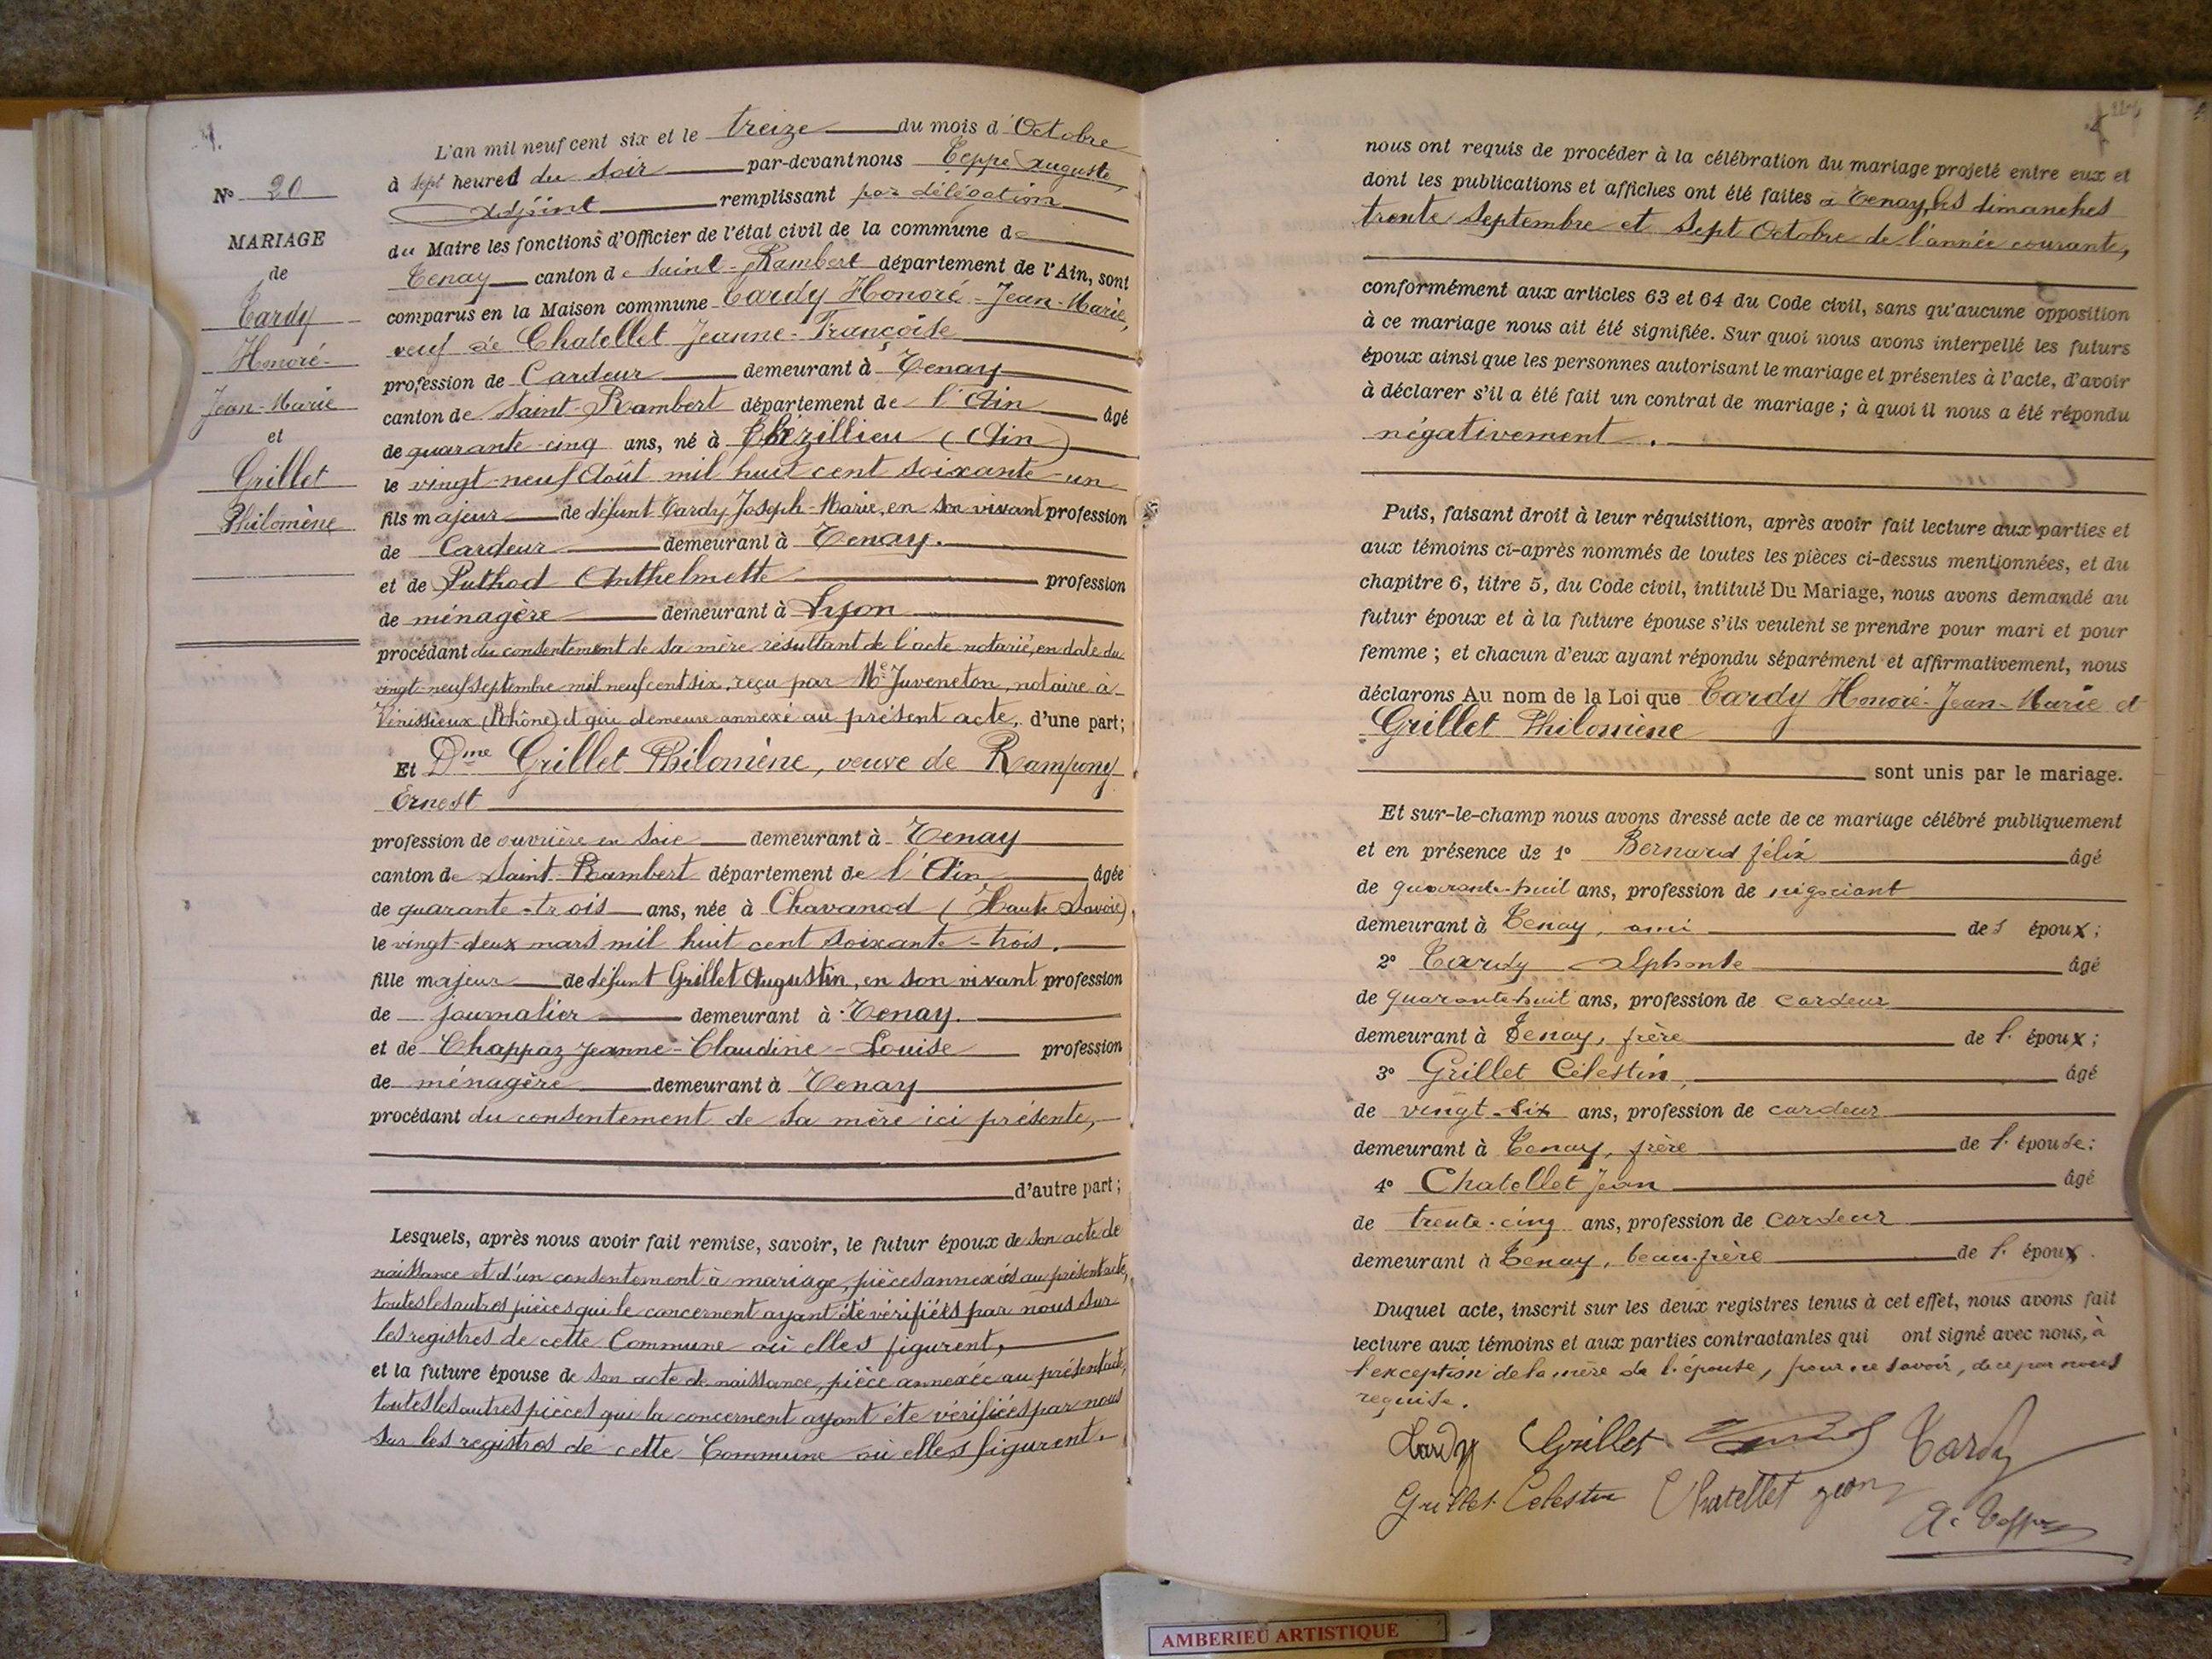 N° 20
MARIAGE
de
Tardy
Honoré-
Jean-Marie
et
Grillet
Philomène
L'an mil neuf cent six et le treize du mois d'Octobre
à sept heures du soir par-devant nous Teppe Auguste,
Adjoint remplissant par délégation
du Maire les fonctions d'Officier de l'état civil de la commune de
Tenay canton de Saint-Rambert département de l'Ain, sont
comparus en la Maison commune Tardy Honoré-Jean-Marie,
veuf de Chatellet Jeanne-Françoise
profession de Cardeur demeurant à Tenay
canton de Saint-Rambert département de l'Ain âgé
de quarante-cinq ans, né à Thézillieu (Ain)
le vingt-neuf Août mil huit cent soixante-un
fils majeur de défunt Tardy Joseph-Marie, en son vivant profession
de Cardeur demeurant à Tenay.
et de Puthod Anthelmette profession
de ménagère demeurant à Lyon
procédant du consentement de sa mère résultant de l'acte notarié, en date du
vingt-neuf septembre mil neuf cent six, reçu par Me Juveneton, notaire à
Vénissieux (Rhône) et qui demeure annexé au présent acte, d'une part;
Et Dme Grillet Philomène, veuve de Rampony
Ernest
profession de ouvrière en soie demeurant à Tenay
canton de Saint-Rambert département de l'Ain âgée
de quarante-trois ans, née à Chavanod (Haute Savoie)
le vingt-deux mars mil huit cent soixante-trois.
fille majeur de défunt Grillet Augustin, en son vivant profession
de journalier demeurant à Tenay.
et de Chappaz Jeanne-Claudine-Louise profession
de ménagère demeurant à Tenay
procédant du consentement de sa mère ici présente,
d'autre part;
Lesquels, après nous avoir fait remise, savoir, le futur époux de son acte de
naissance et d'un consentement à mariage, pièces annexées au présent acte,
toutes les autres pièces qui le concernent ayant été vérifiées par nous sur
les registres de cette Commune où elles figurent,
et la future épouse de son acte de naissance, pièce annexée au présent acte,
toutes les autres pièces qui la concernent ayant été vérifiées par nous
sur les registres de cette Commune où elles figurent.
nous ont requis de procéder à la célébration du mariage projeté entre eux et
dont les publications et affiches ont été faites à Tenay, les dimanches
trente Septembre et sept Octobre de l'année courante,
conformément aux articles 63 et 64 du Code civil, sans qu'aucune opposition
à ce mariage nous ait été signifiée. Sur quoi nous avons interpellé les futurs
époux ainsi que les personnes autorisant le mariage et présentes à l'acte, d'avoir
à déclarer s'il a été fait un contrat de mariage; à quoi il nous a été répondu
négativement.
Puis, faisant droit à leur réquisition, après avoir fait lecture aux parties et
aux témoins ci-après nommés de toutes les pièces ci-dessus mentionnées, et du
chapitre 6, titre 5, du Code civil, intitulé Du Mariage, nous avons demandé au
futur époux et à la future épouse s'ils veulent se prendre pour mari et pour
femme; et chacun d'eux ayant répondu séparément et affirmativement, nous
déclarons Au nom de la Loi que Tardy Honoré-Jean-Marie et
Grillet Philomène
sont unis par le mariage.
Et sur-le-champ nous avons dressé acte de ce mariage célébré publiquement
et en présence de 1° Bernard félix âgé
de quarante-huit ans, profession de négociant
demeurant à Tenay, ami des époux;
2° Tardy Alphonse âgé
de quarante-huit ans, profession de cardeur
demeurant à Tenay, frère de l'époux;
3° Grillet Célestin, âgé
de vingt-six ans, profession de cardeur
demeurant à Tenay, frère de l'épouse;
4° Chatellet Jean âgé
de trente-cinq ans, profession de cardeur
demeurant à Tenay, beau-frère de l'époux.
Duquel acte, inscrit sur les deux registres tenus à cet effet, nous avons fait
lecture aux témoins et aux parties contractantes qui ont signé avec nous, à
l'exception de la mère de l'épouse, pour ne savoir, de ce par nous
requise.
Tardy Grillet Tardy
Grillet Celestin Chatellet jean
A. Teppe
AMBERIEU ARTISTIQUE